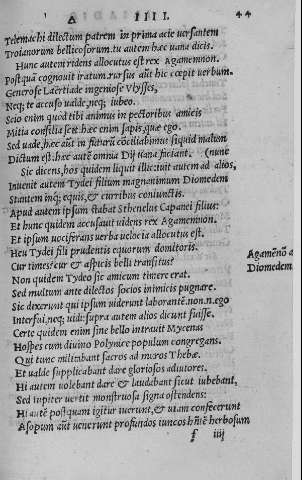 IIII. 44
Telemachi dilectum patrem in prima acie uersantem
Troianorum bellicosorum. tu autem hæc uana dicis.
Hunc autem ridens allocutus est rex Agamemnon.
Postquā cognouit iratum. rursus aūt hic cœpit uerbum.
Generose Laërtiade ingeniose Vlysses,
Neq; te accuso ualde, neq; iubeo.
Scio enim quod tibi animus in pectoribus amicis
Mitia consilia scit. hæc enim sapis, quæ ego.
Sed uade, hæc aūt in futurū cōciliabimus si quid malum
Dictum est. hæc autē omnia Dij uana faciant. (nunc
Sic dicens, hos quidem liquit illic, iuit autem ad alios,
Inuenit autem Tydei filium magnanimum Diomedem
Stantem inq; equis, & curribus coniunctis.
Apud autem ipsum stabat Sthenelus Capanei filius:
Et hunc quidem accusauit uidens rex Agamemnon.
Et ipsum uociferans uerba uelocia allocutus est.
Heu Tydei fili prudentis equorum domitoris.
Agamēnō a
Cur times? cur & aspicis belli transitus?
Diomedem
Non quidem Tydeo sic amicum timere erat.
Sed multum ante dilectos socios inimicis pugnare.
Sic dixerunt qui ipsum uiderunt laborantē. non. n. ego
Interfui, neq; uidi: supra autem alios dicunt fuisse.
Certe quidem enim sine bello intrauit Mycenas
Hospes cum diuino Polynice populum congregans.
Qui tunc militabant sacros ad muros Thebæ.
Et ualde supplicabant dare gloriosos adiutores.
Hi autem uolebant dare & laudabant sicut iubebant,
Sed iupiter uertit monstruosa signa ostendens:
Hi autē postquam igitur iuerunt, & uiam confecerunt
Asopum aūt uenerunt profundos iuncos hñtē herbosum
f iiij